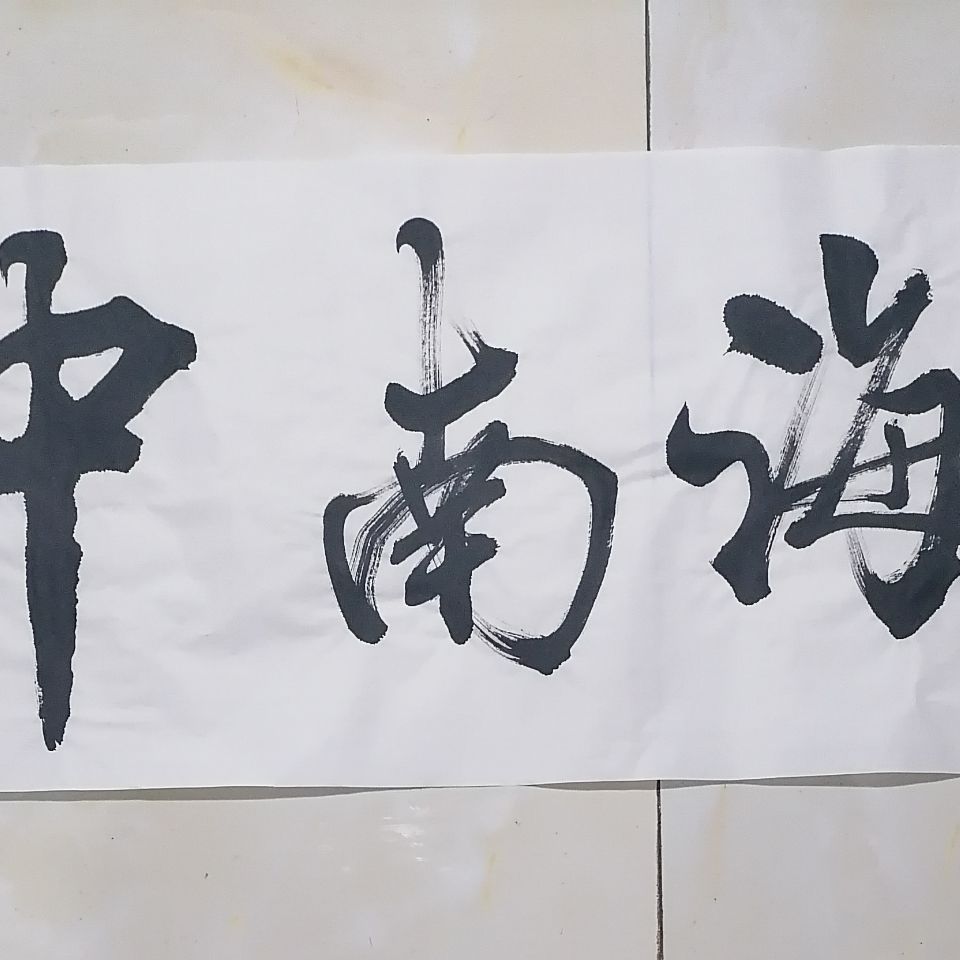 中南海